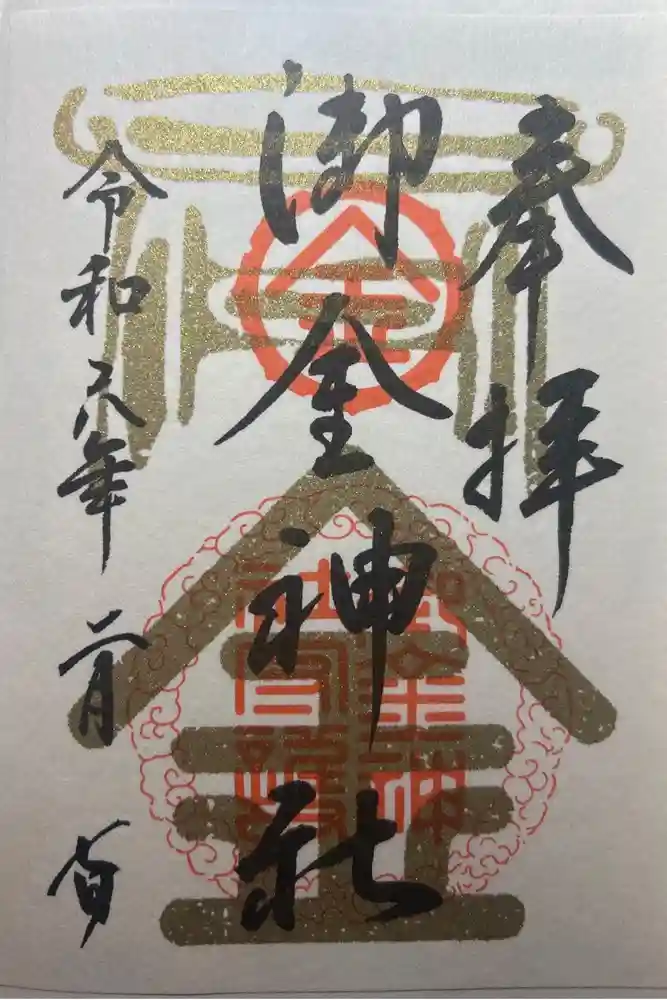 奉拝
御金神社
令和六年二月吉日
金